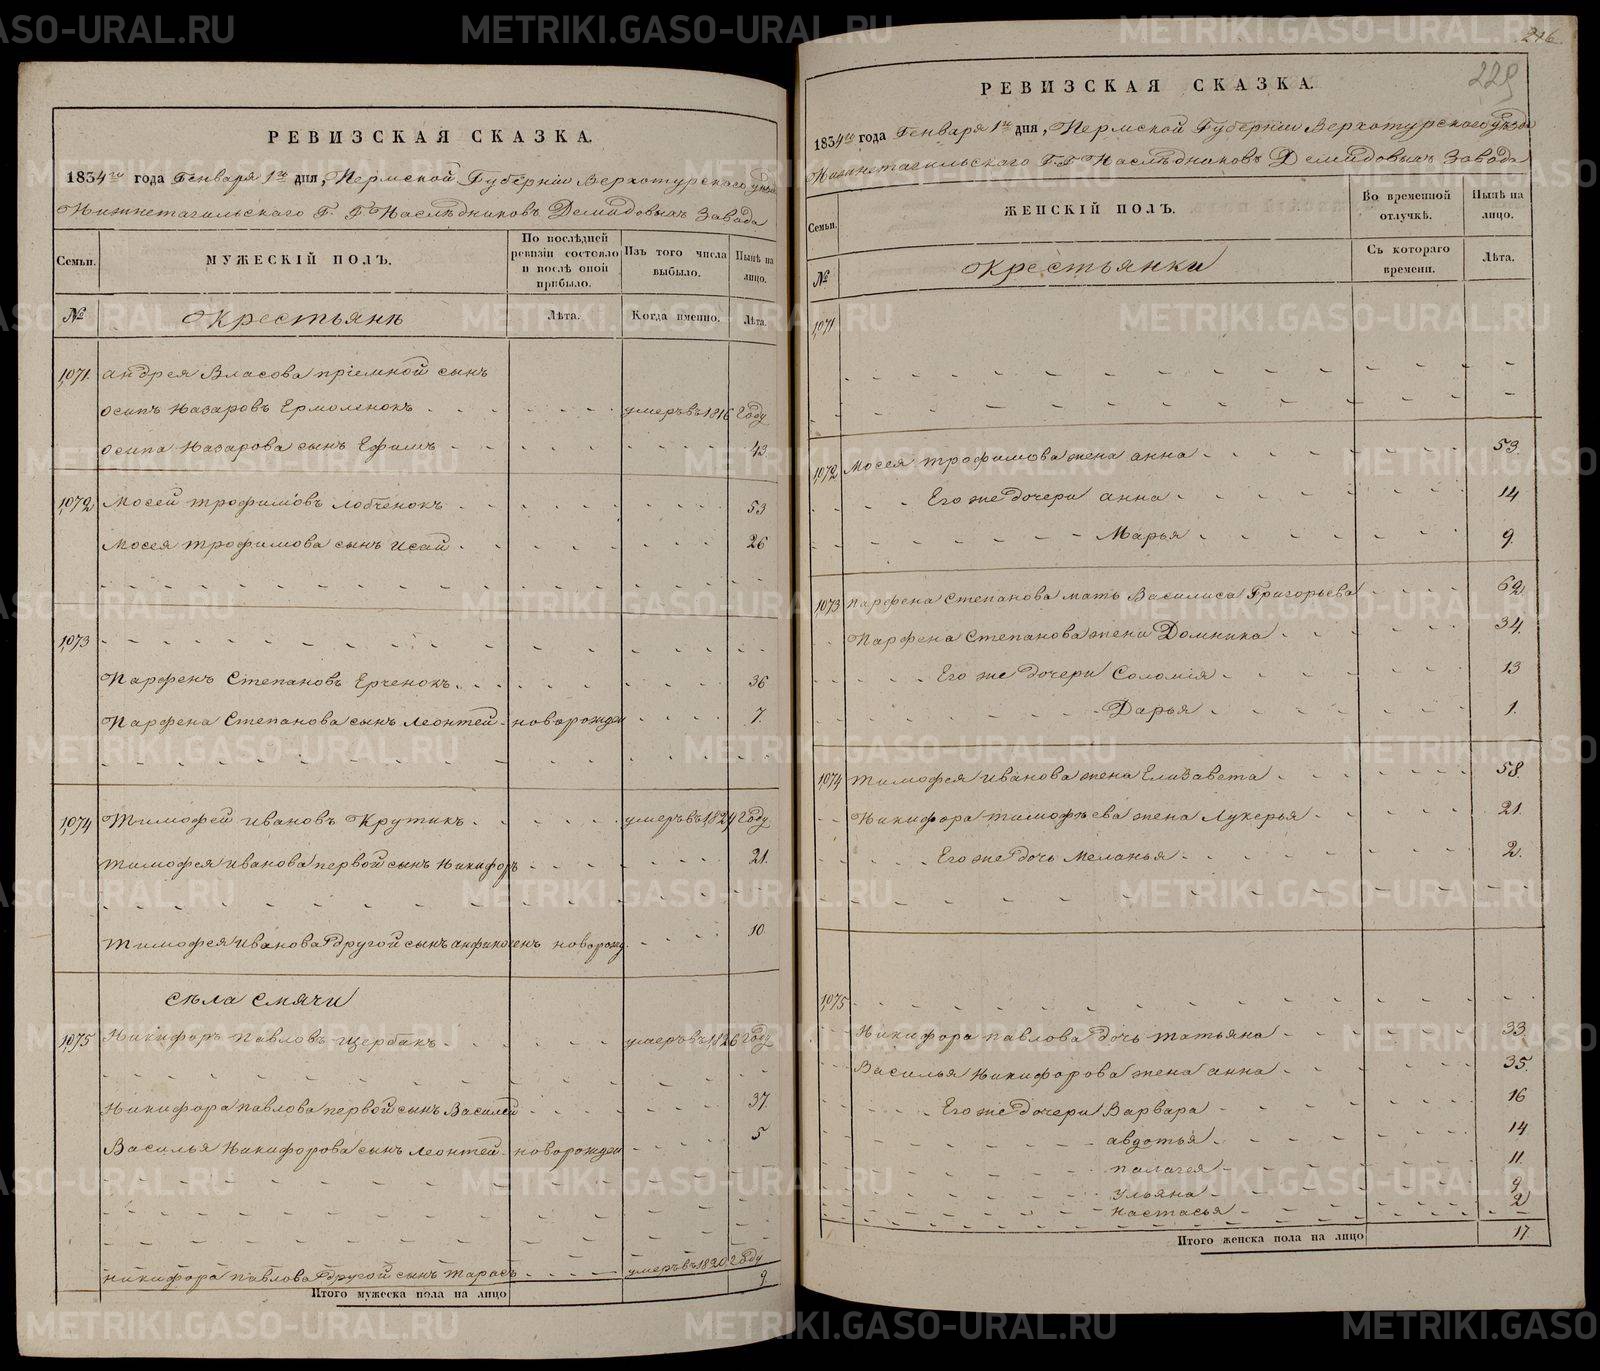 РЕВИЗСКАЯ СКАЗКА.
1834го года Генваря 1го дня, Пермской Губерніи Верхотурскаго уѣзда
Нижнетагильскаго Г. Г. Наслѣдниковъ Демидовыхъ Завода
Семьи.
МУЖЕСКІЙ ПОЛЪ.
По послѣдней ревизіи состояло и послѣ оной прибыло.
Изъ того числа выбыло.
Нынѣ на лицо.
№
Крестьянѣ
Лѣта.
Когда именно.
Лѣта.
1071 андрея Власова пріемной сынъ
осипъ Назаровъ Ермоленокъ умеръ въ 1816 Году
осипа Назарова сынъ Ефимъ 43
1072 Мосей трофимовъ Лобченокъ 53
Мосея трофимова сынъ исай 26
1073
Парфенъ Степановъ Ерченокъ 36
Парфена Степанова сынъ Леонтей новорожден 7
1074 Тимофей ивановъ Крутикъ умеръ въ 1824 Году
тимофея иванова первой сынъ Никифоръ 21
тимофея иванова другой сынъ анфиногенъ новорожд. 10
сѣла Смячи
1075 Никифоръ павловъ щербакъ умеръ въ 1826 Году
Никифора павлова первой сынъ Василей 37
Василья Никифорова сынъ Леонтей новорожден 5
никифора павлова другой сынъ тарасъ умеръ въ 1820 Году
Итого мужеска пола на лицо 9
246
229
РЕВИЗСКАЯ СКАЗКА.
1834го года Генваря 1го дня, Пермской Губерніи Верхотурскаго уѣзда
Нижнетагильскаго Г. Г. Наслѣдниковъ Демидовыхъ Завода
Семьи.
ЖЕНСКІЙ ПОЛЪ.
Во временной отлучкѣ.
Нынѣ на лицо.
№
Крестьянки
Съ котораго времени.
Лѣта.
1071
1072 Мосея трофимова жена анна 53
Его же дочери анна 14
Марья 9
1073 Парфена Степанова мать Василиса Григорьева 62
Парфена Степанова жена Домника 34
Его же дочери Соломія 13
Дарья 1
1074 тимофея иванова жена Елизавета 58
Никифора тимофѣева жена Лукерья 21
Его же дочь Меланья 2
1075
Никифора павлова дочь татьяна 33
Василья Никифорова жена анна 35
Его же дочери Варвара 16
авдотья 14
палагея 11
Ульяна 9
настасья 2
Итого женска пола на лицо 17
METRIKI.GASO-URAL.RU